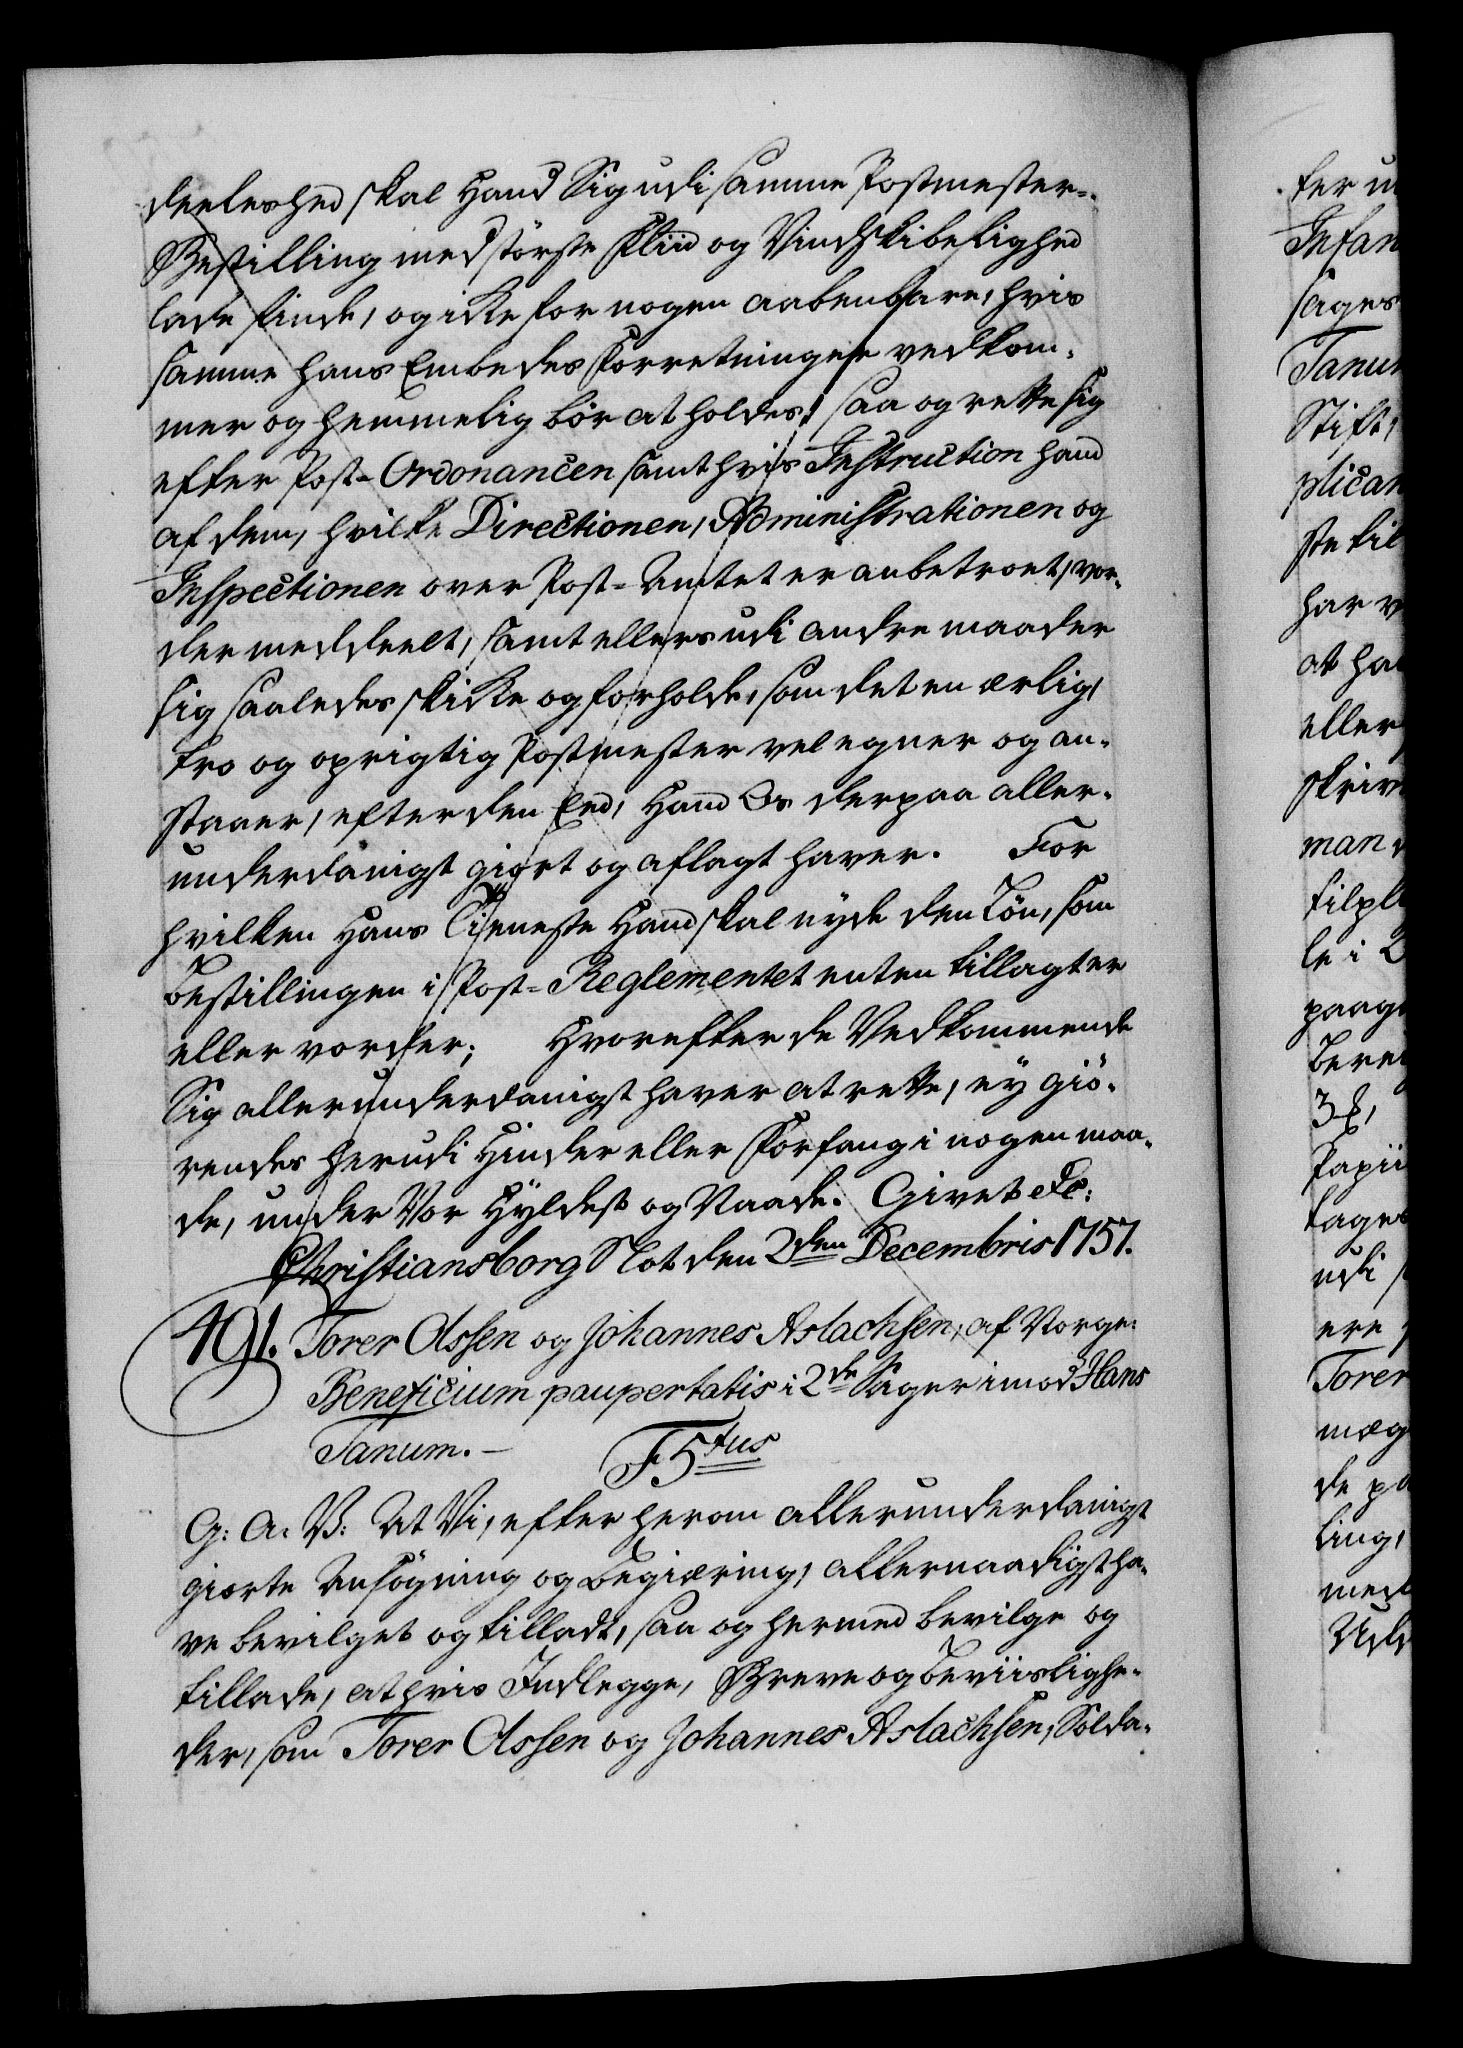 deeleshed skal Hand Sig udi samme Postmester-
Bestilling med störste Fliid og Vindskibelighed
lade finde, og icke for nogen aabenbare, hvis
samme hans Embedes Forretninger vedkom-
mer og hemmelig bör at holdes; saa og rette sig
efter Post-Ordonancen samt hvis Instruction hand
af dem, hvilke Directionen, Administrationen og
Inspectionen over Post-Amtet er anbetroet, vor-
der meddeelt, samt ellers udi andre maader
sig saaledes skicke og forholde, som det en ærlig,
tro og oprigtig Postmester vel egner og an-
staaer, efter den Eed, Hand Os derpaa aller-
underdanigst giort og aflagt haver. For
hvilken Hans Tieneste Hand skal nyde den Lön, som
Bestillingen i Post-Reglementet enten tillagt er
eller vorder; Hvorefter de Vedkommende
Sig allerunderdanigst haver at rette, ey giö-
rendes herudi Hinder eller Forfang i nogen maa-
de, under Vor Hyldest og Naade. Givet &c:
Christiansborg Slot den 2den Decembris 1757.
491. Torer Olssen og Johannes Aslachsen, af Norge:
Beneficium paupertatis i 2de Sager imod Hans
Tanum. -
F5tus
G: A: V: At Vi, efter herom allerunderdanigst
giorte Ansögning og Begiæring, allernaadigst ha-
ve bevilget og tilladt, saa og hermed bevilge og
tillade, at hvis Indlegge, Breve og Beviislighe-
der, som Torer Olssen og Johannes Aslachsen, Solda-
ter
Infan
sages
Tanu
Stift,
plican
ste til
har v
at ha
eller
skriv
man
tilpl
le i
paag
Bere
Papii
tages
udi
ere
Torer
mæg
de pa
ling,
med
Udi